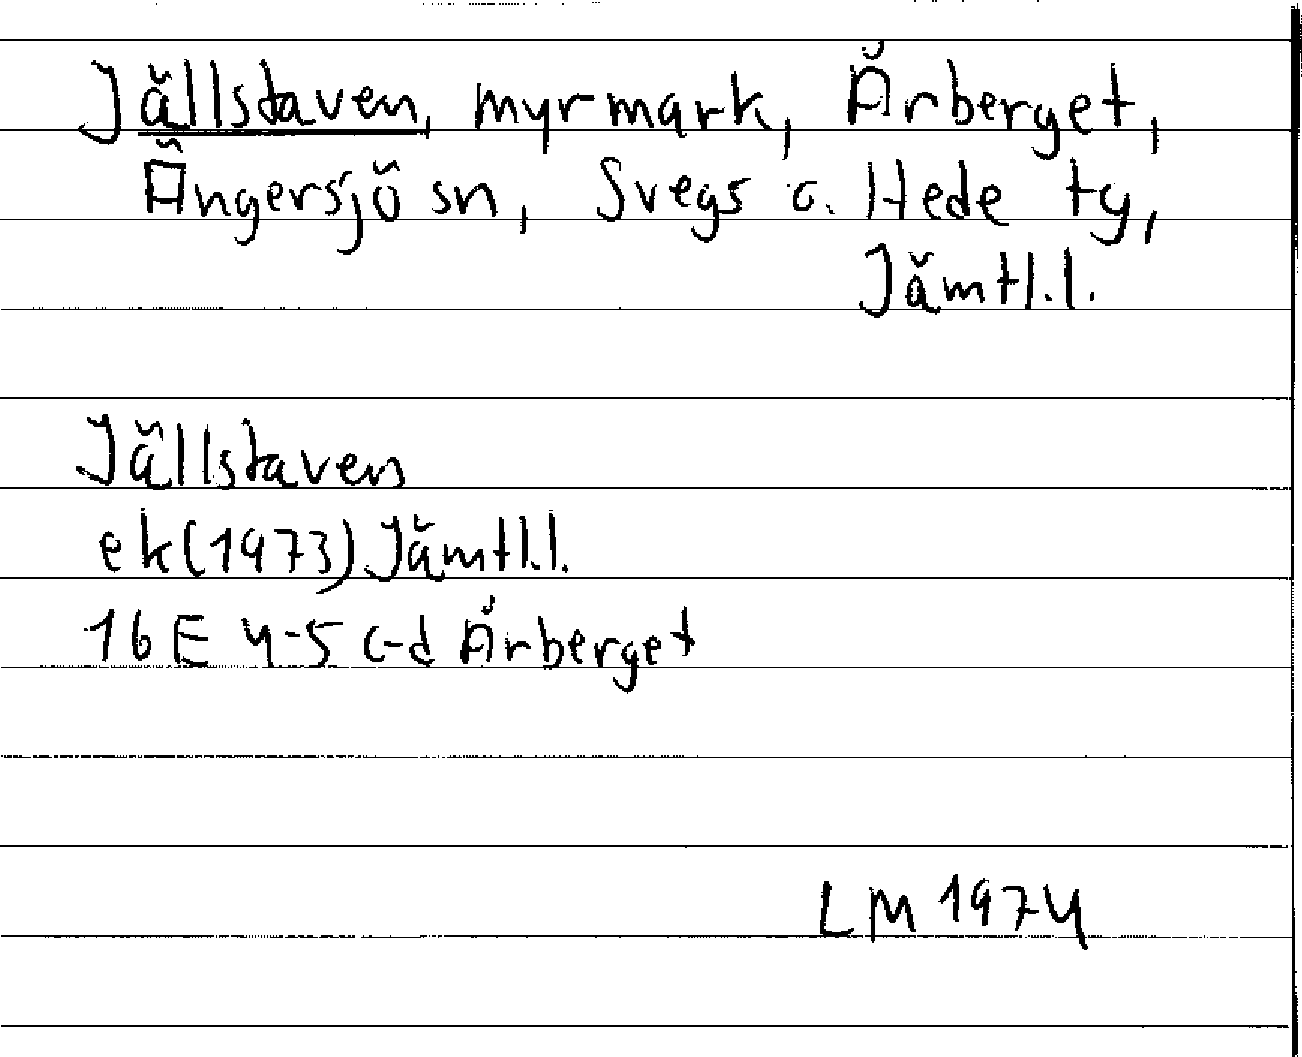 Jällstaven, myrmark, Årberget,
Ängersjö sn, Svegs o. Hede ty,
Jämtl.l.
Jällstaven
ek(1973) Jämtl.l.
16E 4-5 c-d Årberget
LM 1974